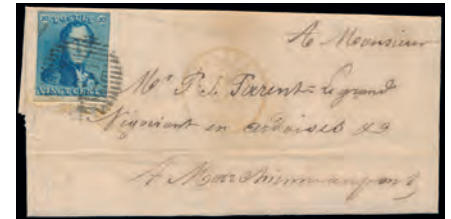 POSTES
20 20
VINGT CENTS
A Monsieur
Mr P. J. Parent-Legrand
Négociant en ardoises &a
A Marchiennaupont